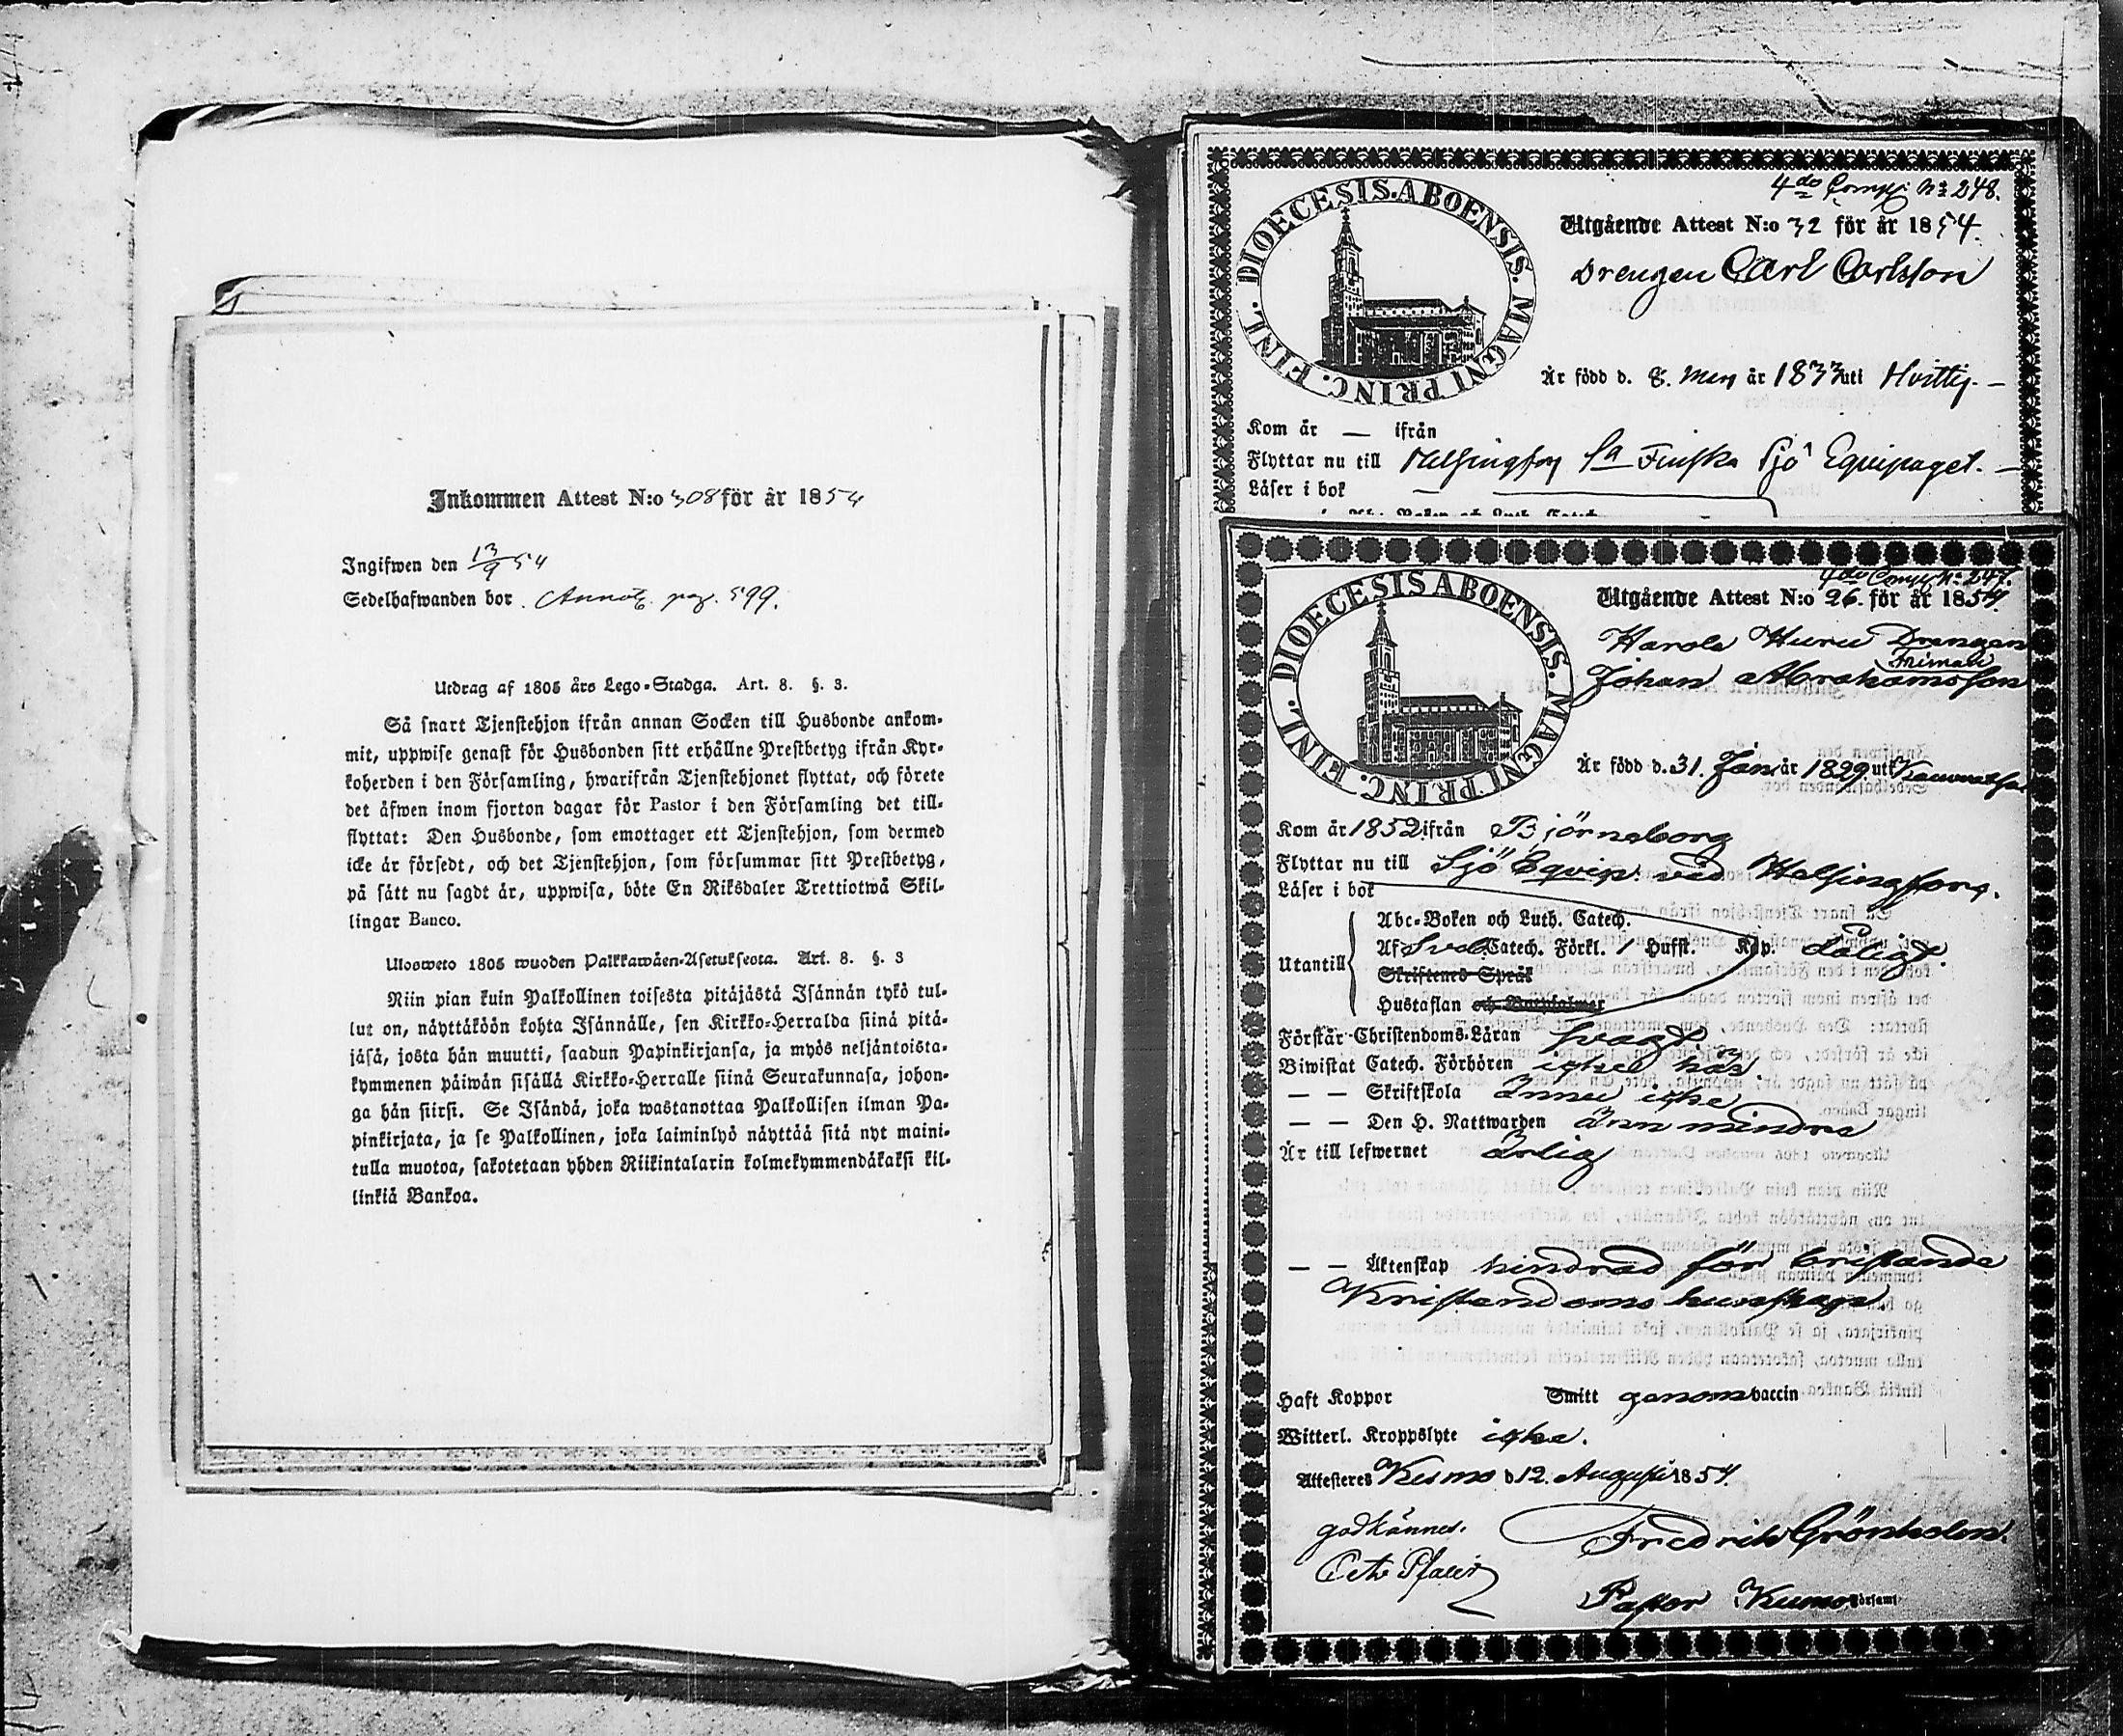 Inkommen Attest N:o 308 för år 1854
Ingifwen den 13/9 54
Sedelhafwanden bor. Annot. pag. 599.
Utdrag af 1805 års Lego-Stadga. Art. 8. §. 3.
Så snart Tjenstehjon ifrån annan Socken till Husbonde ankom-
mit, uppwise genast för Husbonden sitt erhållne Prestbetyg ifrån Kyr-
koherden i den Församling, hwarifrån Tjenstehjonet flyttat, och förete
det äfwen inom fjorton dagar för Pastor i den Församling det till-
flyttat: Den Husbonde, som emottager ett Tjenstehjon, som dermed
icke är försedt, och det Tjenstehjon, som försummar sitt Prestbetyg,
på sätt nu sagdt är, uppwisa, böte En Riksdaler Trettiotwå Skil-
lingar Banco.
Ulosweto 1805 wuoden Palkkawäen-Asetuksesta. Art. 8. §. 3
Niin pian kuin Palkollinen toisesta pitäjästä Isännän tykö tul-
lut on, näyttäköön kohta Isännälle, sen Kirkko-Herralda siinä pitä-
jäsä, josta hän muutti, saadun Papinkirjansa, ja myös neljäntoista-
kymmenen päiwän sisällä Kirkko-Herralle siinä Seurakunnasa, johon-
ga hän siirsi. Se Isändä, joka wastanottaa Palkollisen ilman Pa-
pinkirjata, ja se Palkollinen, joka laiminlyö näyttää sitä nyt maini-
tulla muotoa, sakotetaan yhden Riikintalarin kolmekymmendäkaksi kil-
linkiä Bankoa.
4do Comp. No 248.
DIOECESIS ABOENSIS. MAGNI PRINC. FINL.
Utgående Attest N:o 32 för år 1854.
Drengen Carl Carlsson
Är född d. 8. Maij år 1833 uti Hvittis. —
Kom år — ifrån
Flyttar nu till Helsingfors 1a Finska Sjö Equipaget. —
Läser i bok —
4do Comp. No 247.
DIOECESIS ABOENSIS. MAGNI PRINC. FINL.
Utgående Attest N:o 26. för år 1854.
Harola Huru Drengen
Friman
Johan Abrahamsson
Är född d. 31. Jan. år 1829 uti
Kom år 1852 ifrån Björneborg
Flyttar nu till Sjö Equip. vid Helsingfors.
Läser i bok
Abc-Boken och Luth. Catech.
Utantill Af Sveb. Catech. Förkl. 1 Hufst. Kap. dåligt.
Skriftenes Språk
Hustaflan och Botpsalmer
Förstår Christendoms-Läran svagt
Biwistat Catech. Förhören icke här.
— — Skriftskola ännu icke
— — Den H. Nattwarden änn mindre
Är till lefwernet ärlig
— — Äktenskap hindrad för bristande
Kristendoms kunskap
Haft Koppor Smitt genom vaccin
Witterl. Kroppslyte icke.
Attesteres Kumo d 12. Augusti 1854.
godkännes. Fredrik Grönholm.
Pastor i Kumo Församl.